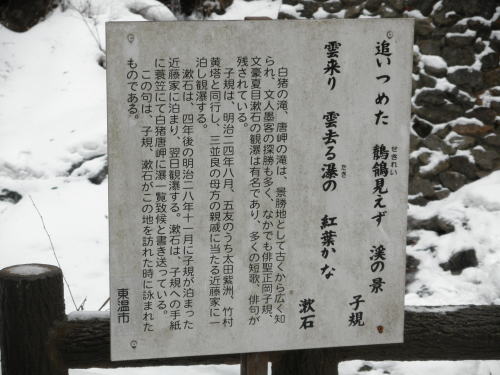 追いつめた　鶺鴒見えず　渓の景
せきれい
子規
雲来り　雲去る瀑の　紅葉かな
たき
漱石
白猪の滝、唐岬の滝は、景勝地として古くから広く知
られ、文人墨客の探勝も多く、なかでも俳聖正岡子規、
文豪夏目漱石の観瀑は有名であり、多くの短歌、俳句が
残されている。
子規は、明治二四年八月、五友のうち太田紫洲、竹村
黄塔と同行し、三並良の母方の親戚に当たる近藤家に一
泊し観瀑する。
漱石は、四年後の明治二八年十一月に子規が泊まった
近藤家に泊まり、翌日観瀑する。漱石は、子規への手紙
に蓑笠にて白猪唐岬に瀑一覧致候と書き送っている。
この句は、子規、漱石がこの地を訪れた時に詠まれた
ものである。
東温市